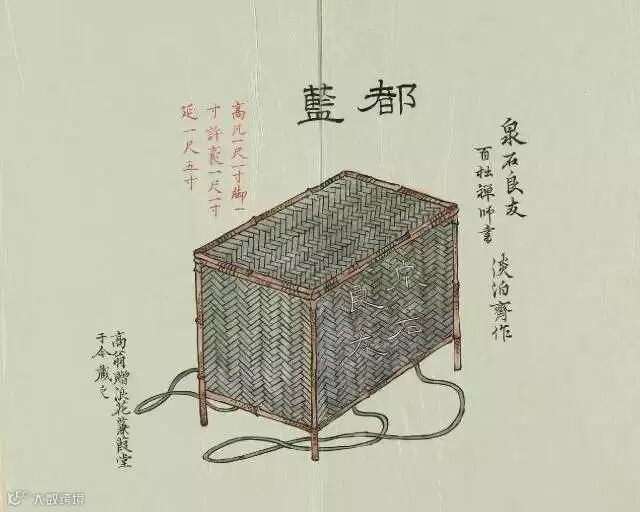 都籃
泉石良友
百拙禅师書
淡泊齊作
高凡一尺一寸脚一
寸許裹一尺一寸
延一尺五寸
泉石
良友
高翁贈浪花蒹葭堂
于今蔵之
大数跨境